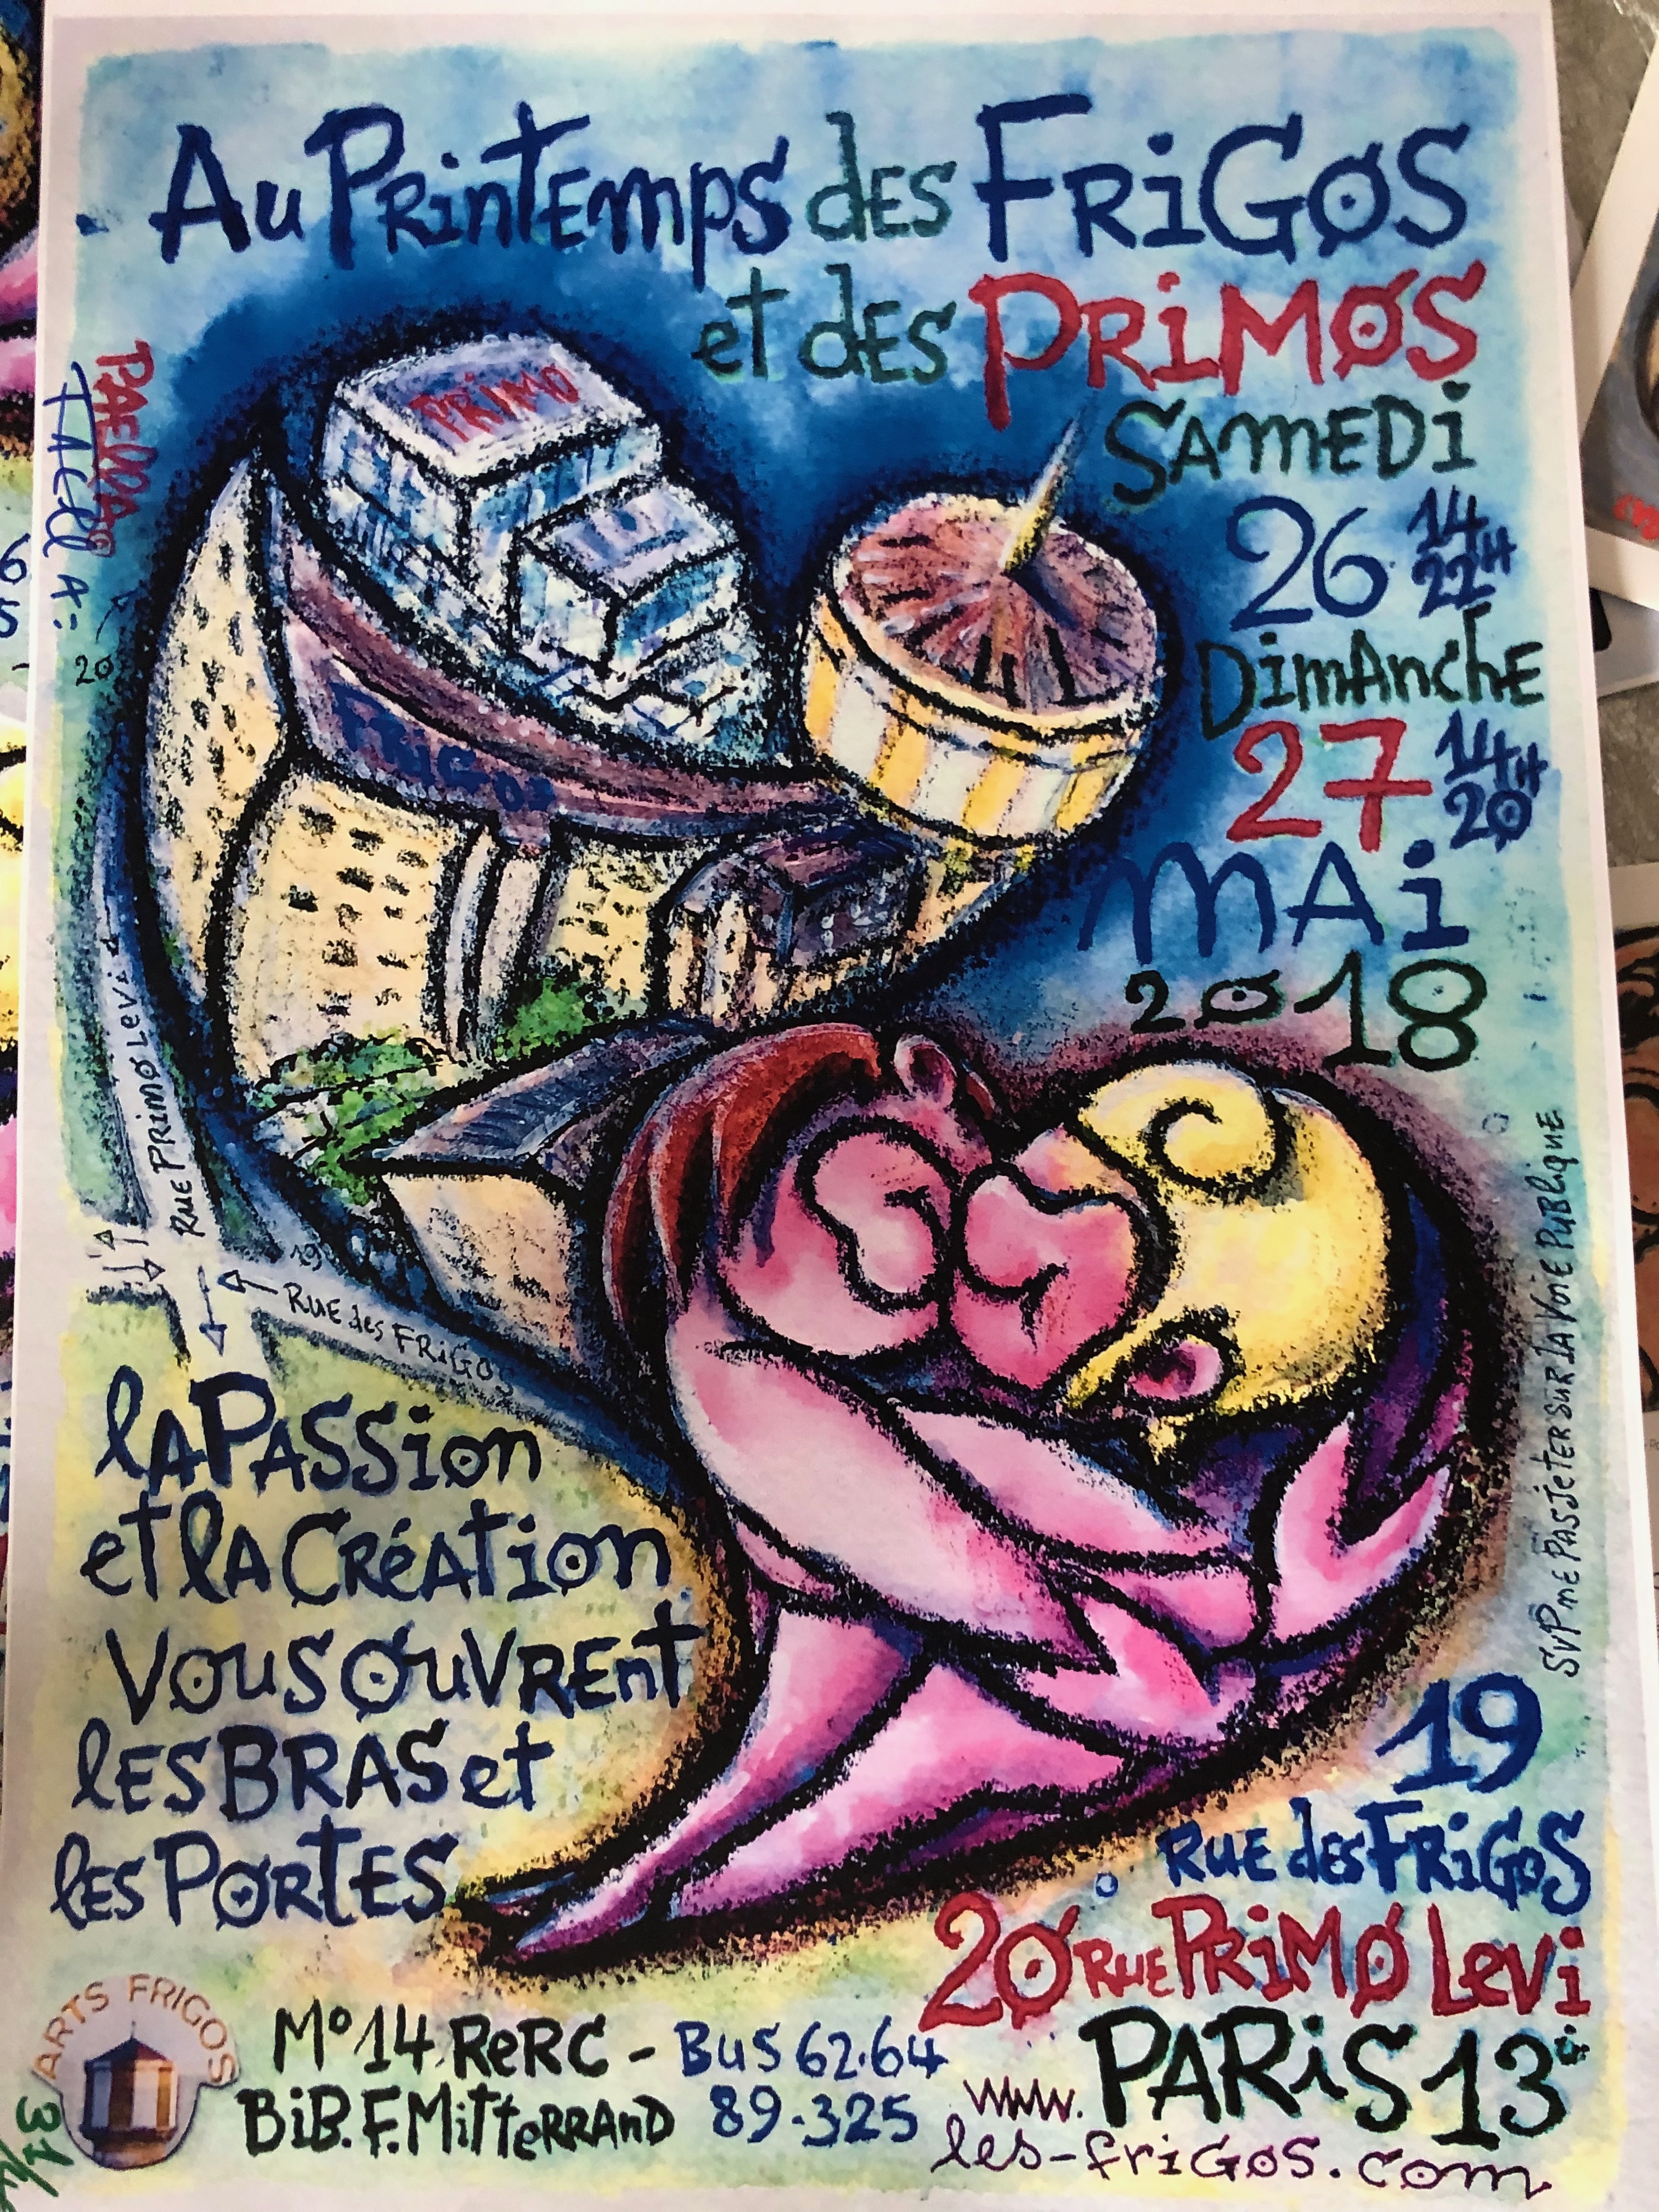 Au Printemps des FRiGOS
et des PRiMOS
SAMEDi
26 14
22H
DimAnchE
27 14H
20
MAi
2018
PRIMO
FRiGOS
PAELLA
PAElla
20
Rue PRiMO Levi
19
Rue des FRiGOS
SVP ne Pas jeter sur la Voie PubliquE
lA PAssion
et lA CRéAtion
Vous OuVREnt
lES BRAS et
lES PORtES
19
RuE des FRiGOS
20 RuE PRiMO Levi
PARiS 13e
www.
les-friGos.com
M° 14. ReRC - Bus 62.64
BiB. F. MitteRRAnD 89.325
ARTS FRIGOS